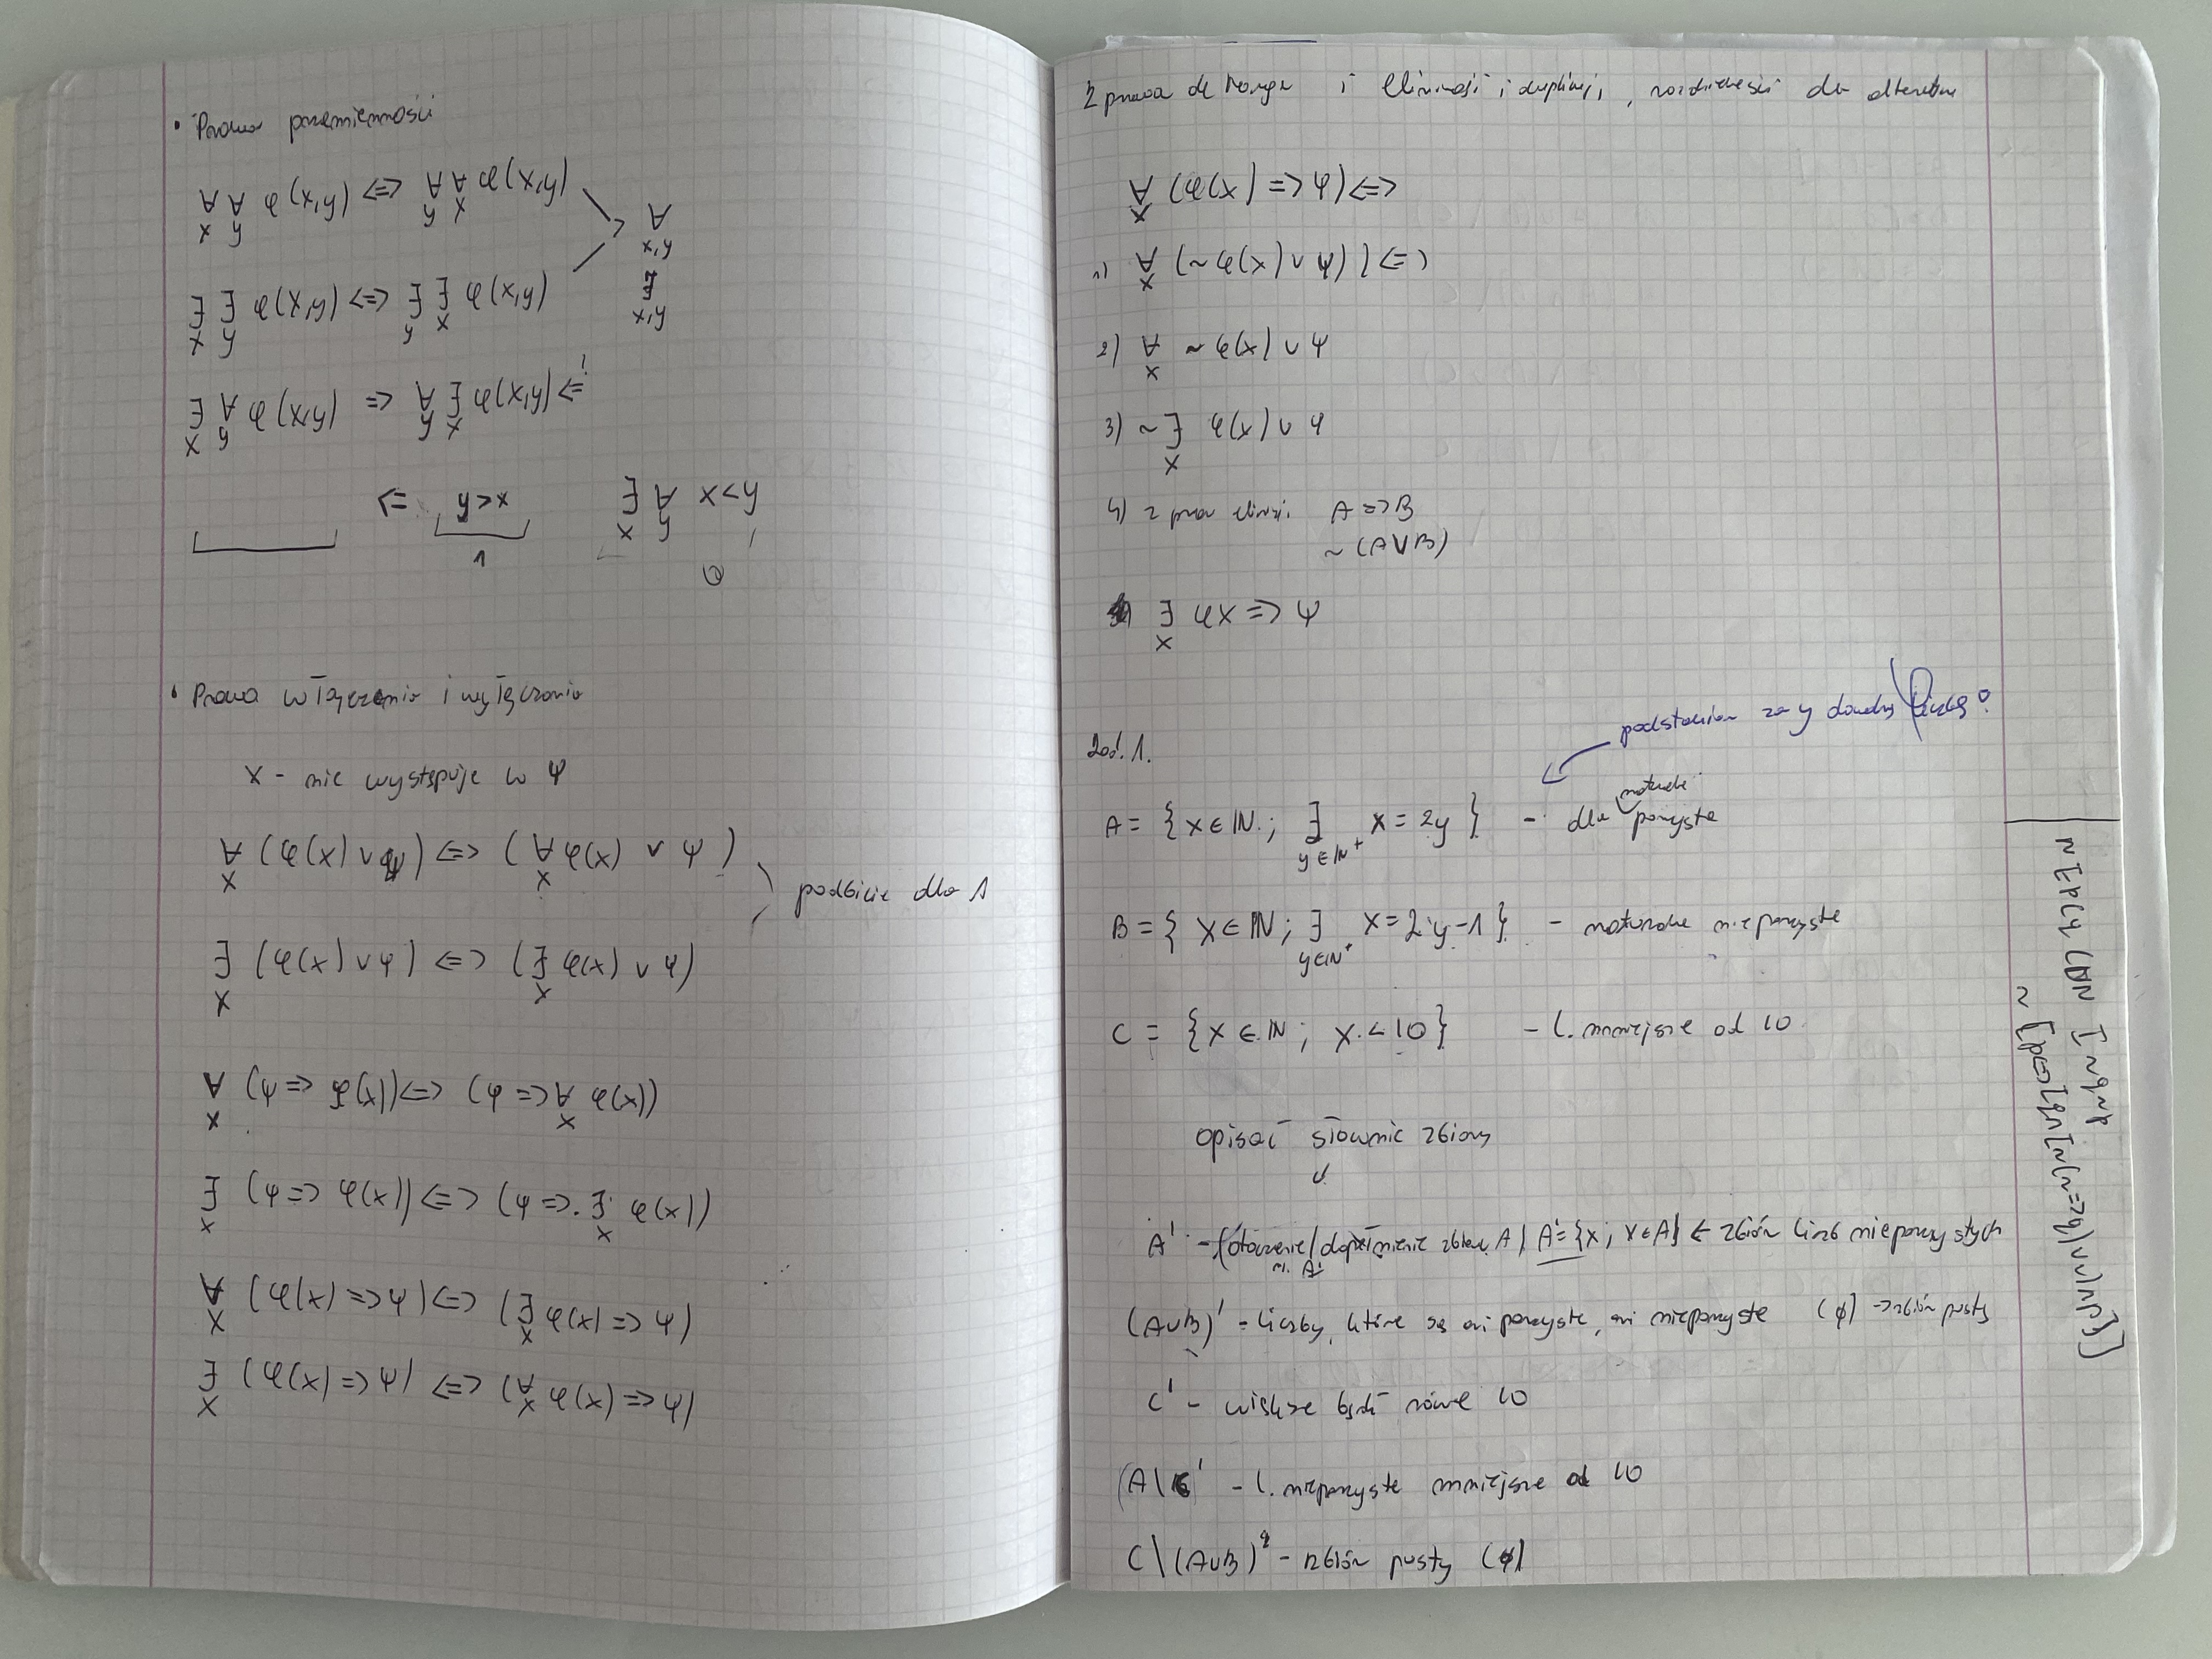 • Prawa przemienności
∀x ∀y φ(x,y) <=> ∀y ∀x φ(x,y)
∀x,y
∃x ∃y φ(x,y) <=> ∃y ∃x φ(x,y)
∃x,y
∃x ∀y φ(x,y) => ∀y ∃x φ(x,y) <= !
<= y>x ∃x ∀y x<y
1 0
• Prawa włączania i wyłączania
x - nie występuje w ψ
∀x (φ(x) ∨ ψ) <=> (∀x φ(x) ∨ ψ)
podbicie dla 1
∃x (φ(x) ∨ ψ) <=> (∃x φ(x) ∨ ψ)
∀x (ψ => φ(x)) <=> (ψ => ∀x φ(x))
∃x (ψ => φ(x)) <=> (ψ => ∃x φ(x))
∀x (φ(x) => ψ) <=> (∃x φ(x) => ψ)
∃x (φ(x) => ψ) <=> (∀x φ(x) => ψ)
Z prawa de Morga i , do
∀x (φ(x) => ψ) <=>
1) ∀x (~φ(x) ∨ ψ)) <=>
2) ∀x ~φ(x) ∨ ψ
3) ~∃x φ(x) ∨ ψ
4) z praw A => B
~(A∨B)
∃x φx => ψ
podstawiam za y liczbę
Zad. 1.
A = {x ∈ ℕ; ∃y∈ℕ⁺ x = 2y} - dla naturalne parzyste
B = {x ∈ ℕ; ∃y∈ℕ⁺ x = 2·y-1} - naturalne nieparzyste
C = {x ∈ ℕ; x < 10} - l. mniejsze od 10
opisać słownie zbiory
A' - dopełnienie zbioru A / A' = {x; x∈A} <- zbiór liczb nieparzystych
(A∪B)' - liczby, które są ani parzyste, ani nieparzyste (∅) -> zbiór pusty
C' - większe bądź równe 10
(A\C)' - l. nieparzyste mniejsze od 10
C\(A∪B)' - zbiór pusty (∅)